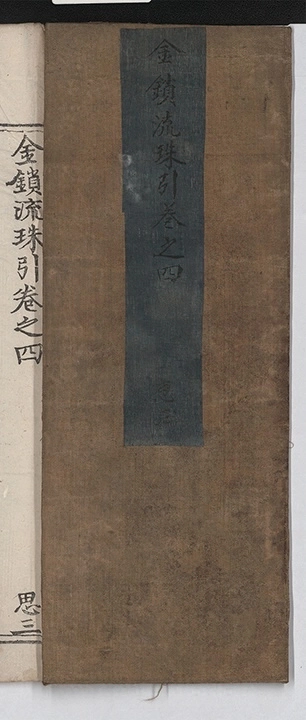 金鎖流珠引卷之四
金鎖流珠引卷之四
思三